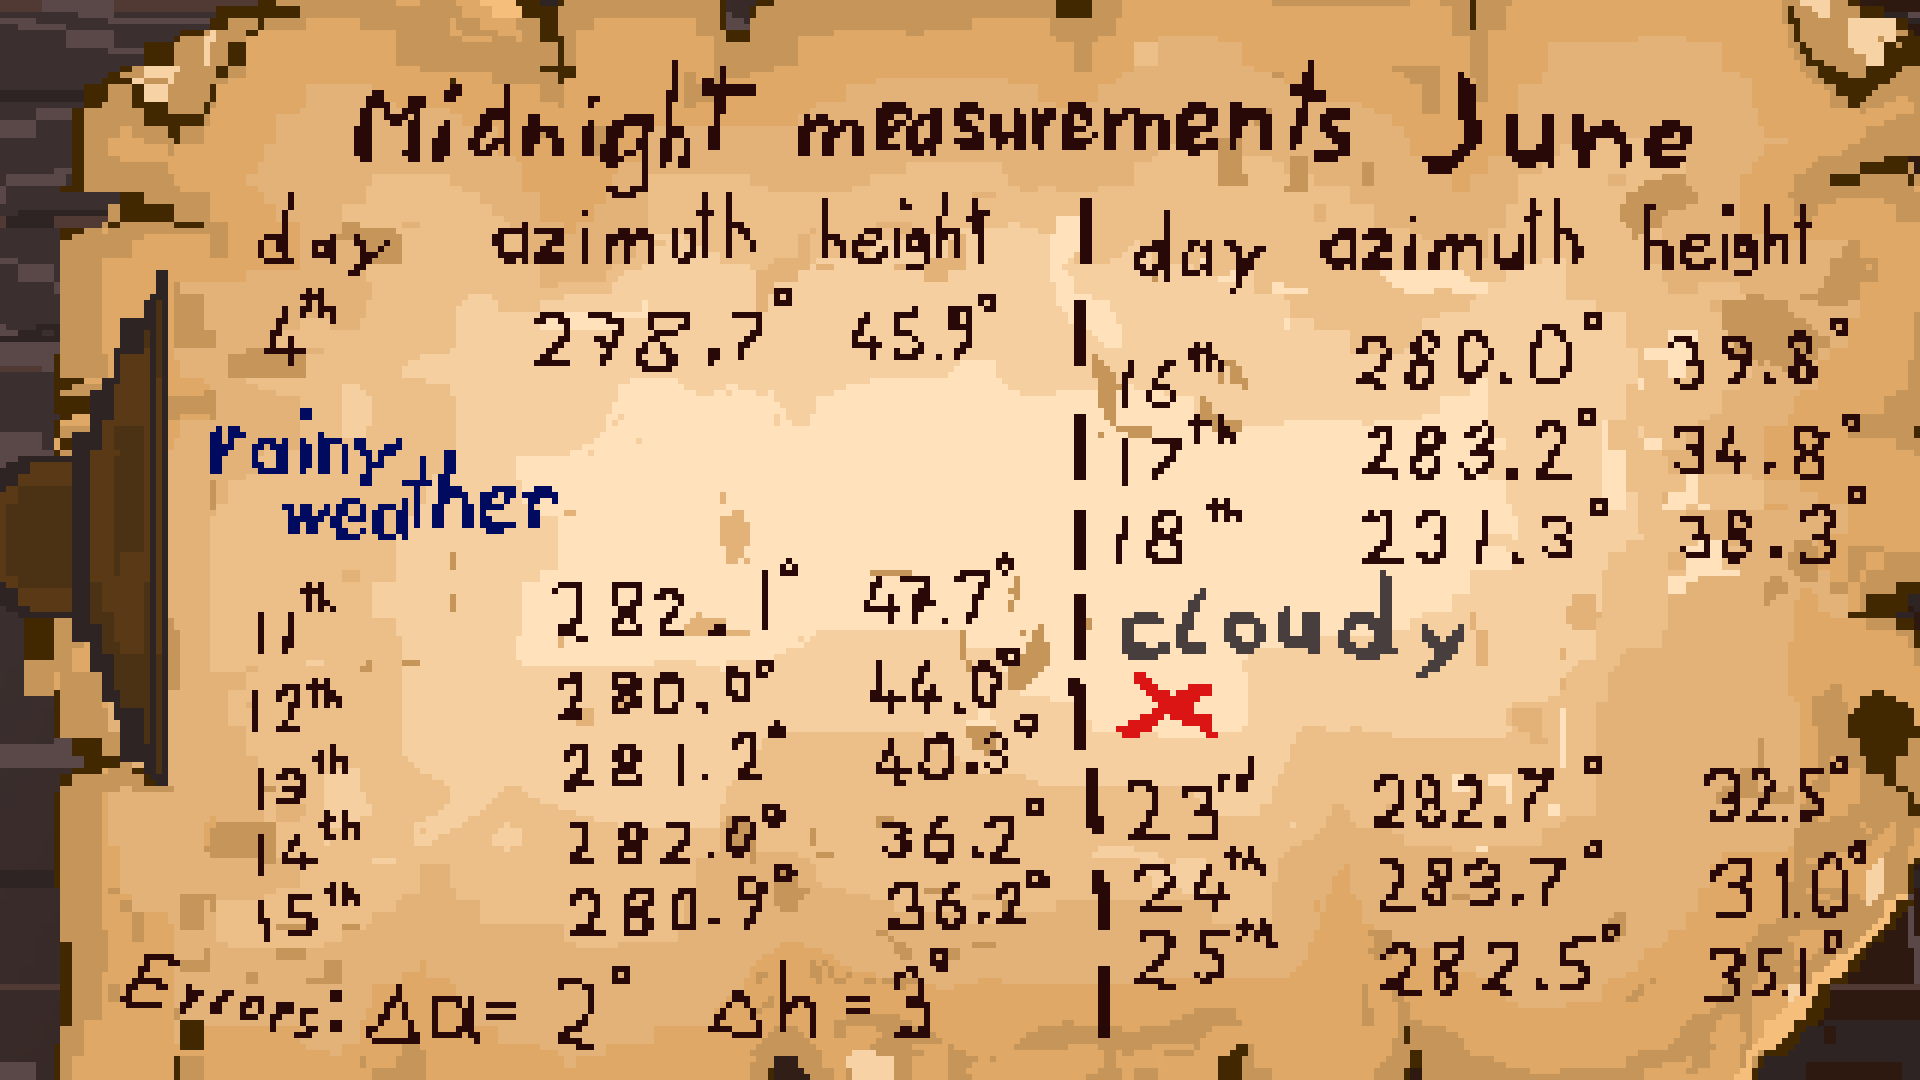 Midnight measurements June
day azimuth height
4th 278.7° 45.9°
rainy
weather
11th 282.1° 47.7°
12th 280.0° 44.0°
13th 281.2° 40.3°
14th 282.0° 36.2°
15th 280.9° 36.2°
Errors: Δa= 2° Δh = 3°
day azimuth height
16th 280.0° 39.8°
17th 283.2° 34.8°
18th 231.3° 38.3°
cloudy
23rd 282.7° 32.5°
24th 283.7° 31.0°
25th 282.5° 35.1°